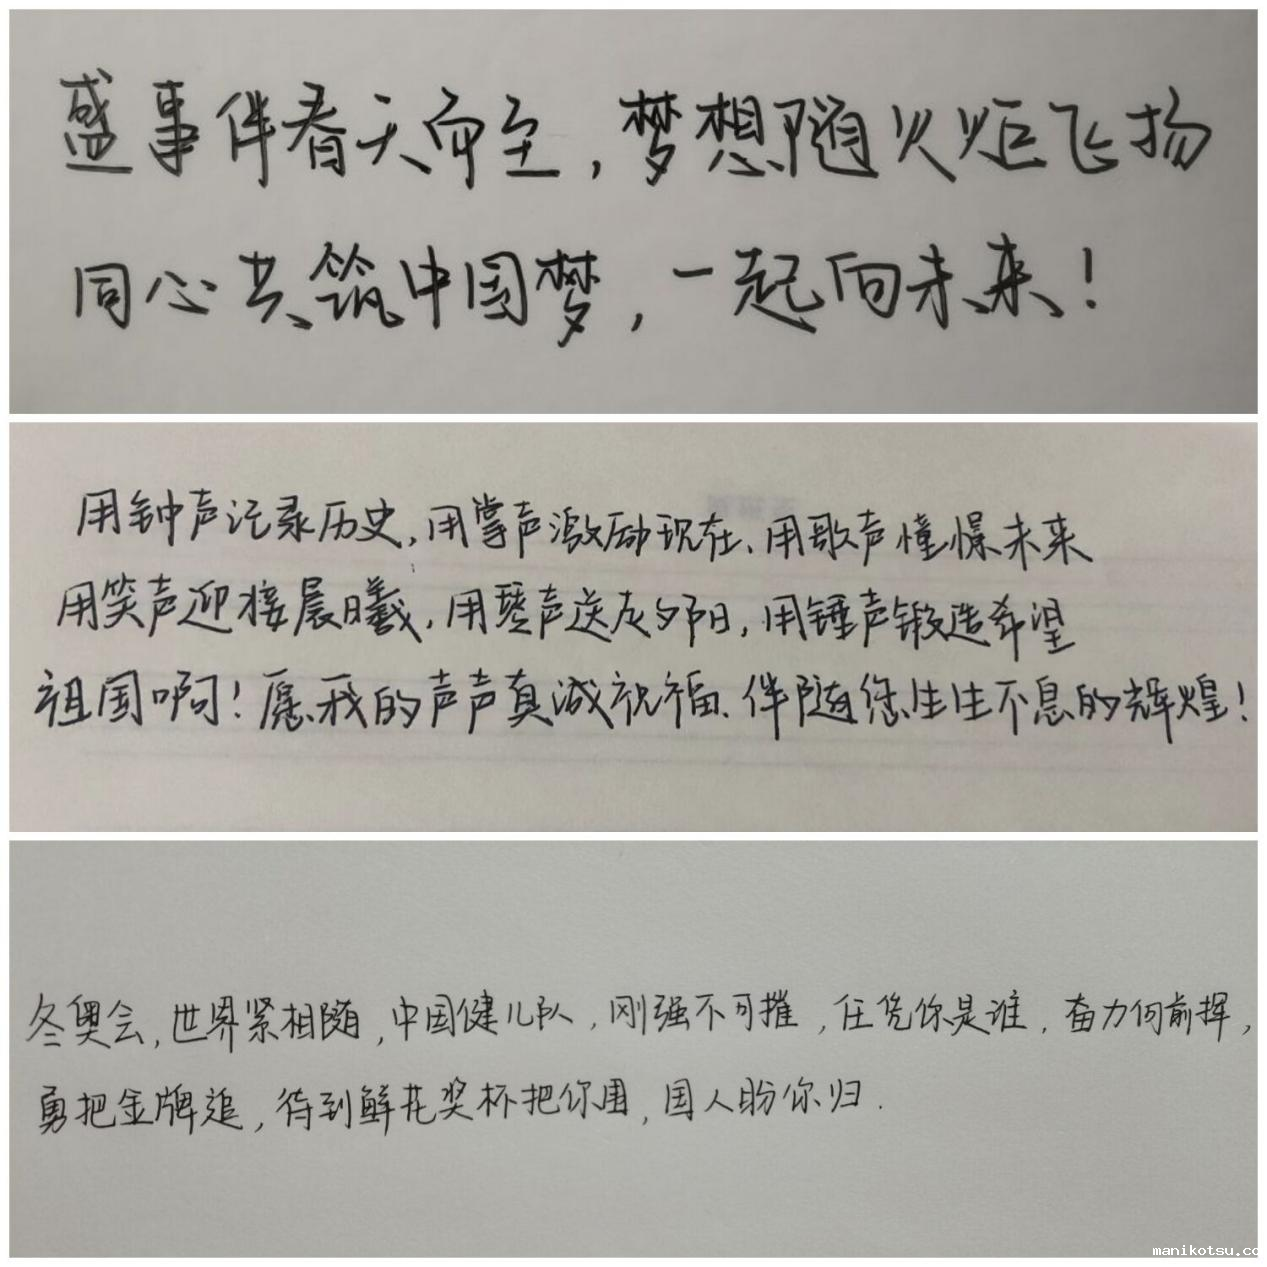 盛事伴春天而至，梦想随火炬飞扬
同心共筑中国梦，一起向未来！
用钟声记录历史，用掌声激励现在、用歌声憧憬未来
用笑声迎接晨曦，用琴声送走夕阳，用锤声锻造希望
祖国啊！愿我的声声真诚祝福、伴随您生生不息的辉煌！
冬奥会，世界紧相随，中国健儿队，刚强不可摧，任凭你是谁，奋力向前挥，
勇把金牌追，待到鲜花奖杯把你围，国人盼你归.
manikotsu.co